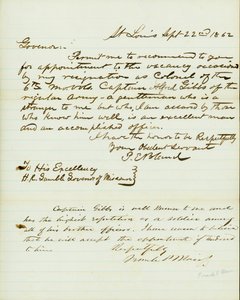 St Louis Sept 22nd 1862
Governor:
Permit me to recommend to you
for appointment to the vacancy occasioned
by my resignation as Colonel of the
6th Mo Vols Captain Alfred Gibbs of the
regular Army - a gentleman who is a
stranger to me but who, I am assured by those
who know him well, is an excellent
man and an accomplished officer.
I have the honor to be Respectfully
Your Obedient Servant
To His Excellency
H. R. Gamble Governor of Missouri
Captain Gibbs is well known to me and
has the highest reputation as a soldier among
all of his brother officers. I have reason to believe
that he will accept the appointment if tendered
to him
Respectfully